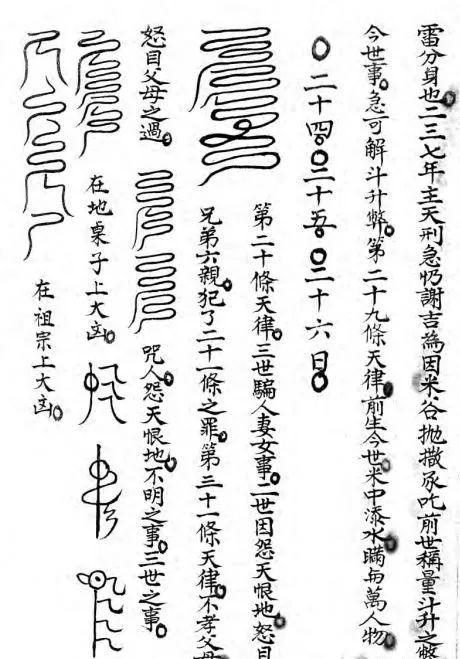 雷分身也二三七年主天刑急忉謝吉為因米谷抛撒承吃前世稱量斗升之弊
今世事急可解斗升弊第二十九條天律前生今世米中添水瞞每萬人物
二十四二十五二十六日
第二十條天律三世騙人妻女事二世因怨天恨地怒目
兄弟六親犯了二十一條之罪第三十一條天律不孝父母
怒目父母之過
咒人怨天恨地不明之事三世之事
在地桌子上大凶
在祖宗上大凶